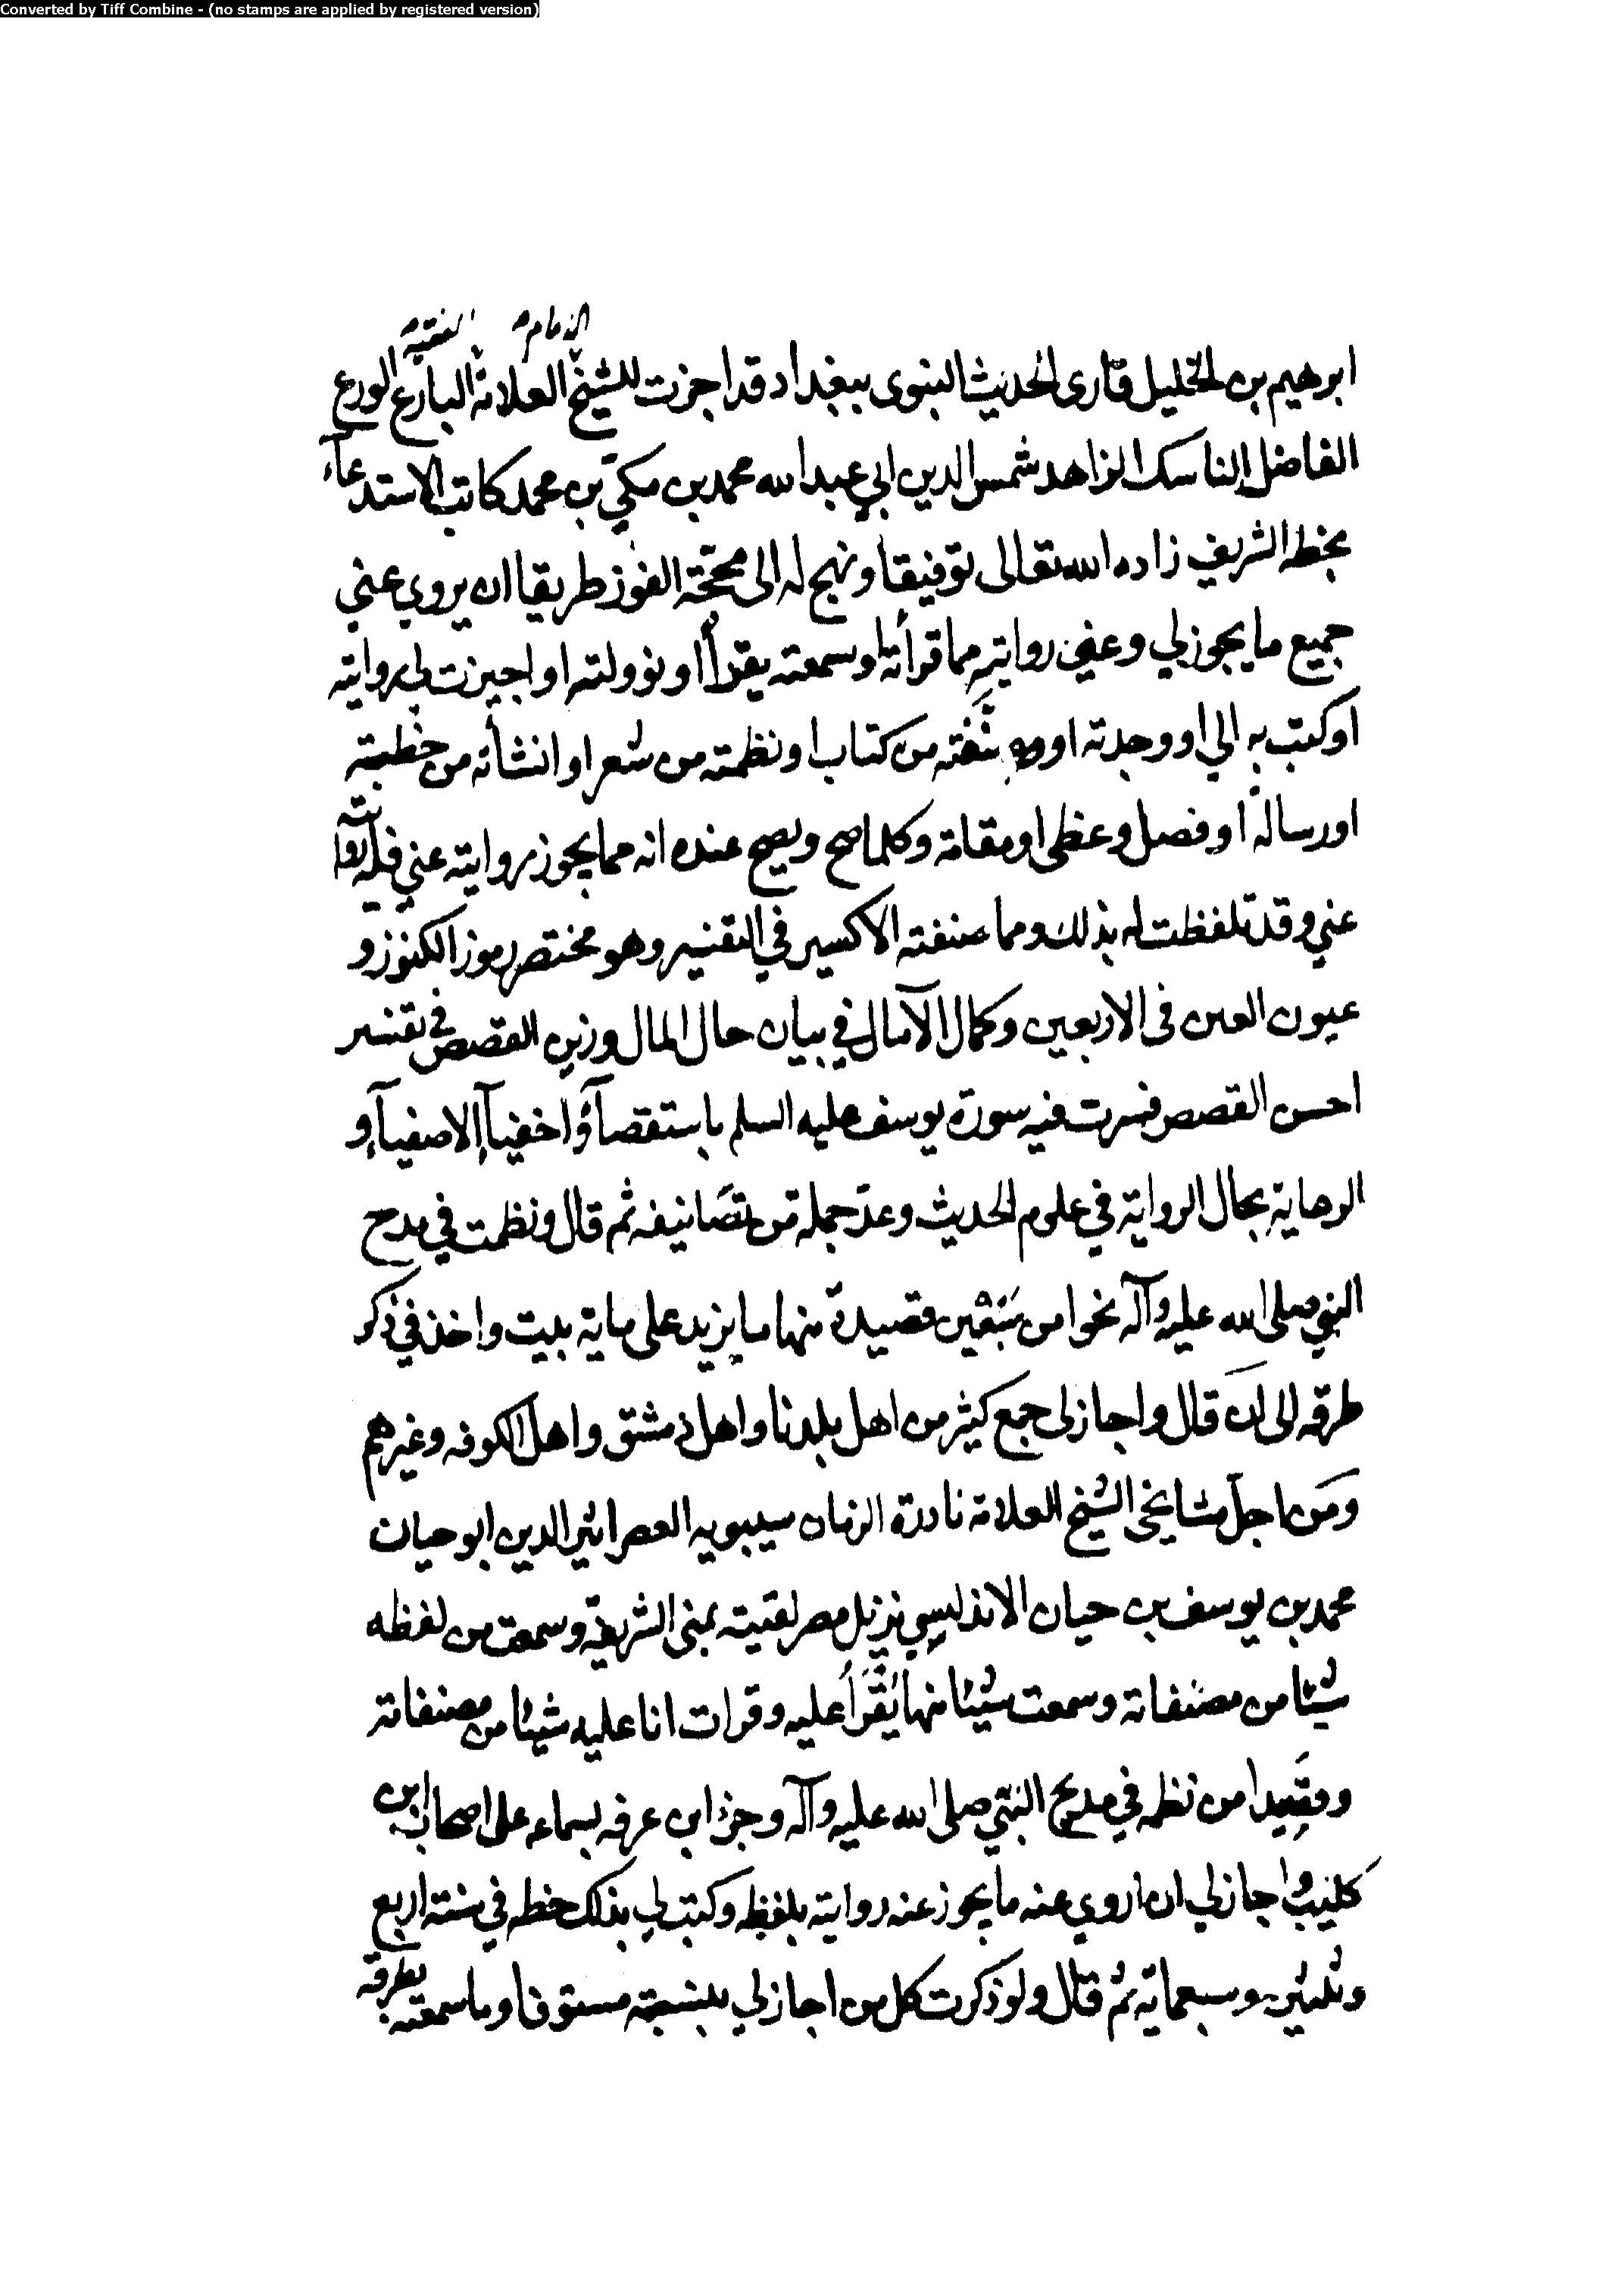 Converted by Tiff Combine - (no stamps are applied by registered version)
الامام الفقيه
ابرهيم بن الخليل قارى الحديث النبوى ببغداد قد اجزت للشيخ العلامة البارع الورع
الفاضل الناسك الزاهد شمس الدين ابي عبد الله محمد بن مكي بن محمد كاتب الاستدعآء
بخطه الشريف زاده الله تعالى توفيقا ونهج له الى محجة الفوز طريقا ان يروي عني
جميع ما يجوز لي وعني روايته مما قرأته اوسمعته يقرأ او نوولته او اجيزت لي روايته
او كتب به الي او وجدته او من كتاب او نظمته من شعر او انشأته من خطبة
او رسالة او فصل وعظى او مقامة وكلما صح ويصح عنده انه مما يجوز روايته عني فله روايته
عني وقد تلفظت له بذلك ومما صنفته الاكسير في التفسير وهو مختصر رموز الكنوز و
عيون العين فى الاربعين وكمال الآمال في بيان حال المال وزين القصص في تفسير
احسن القصص فسرت فيه سورة يوسف عليه السلم باستقصآء واخفيآء الاصفيآء و
الرعاية بحال الرواية في علوم الحديث وعد جملة من تصانيفه ثم قال ونظمت في مدح
النبي صلى الله عليه وآله نحوا من قصيدة منها ما يزيد على ماية بيت واخذ في ذكر
طرقه الى ان قال واجاز لى جمع كثير من اهل بلدنا واهل دمشق واهل الكوفه وغيرهم
ومن اجل مشايخى الشيخ العلامة نادرة الزمان سيبويه العصر اثير الدين ابو حيان
محمد بن يوسف بن حيان الاندلسي نزيل مصر لقيته بمنى الشريفة وسمعت من لفظه
شيئا من مصنفاته وسمعت شيئا منها يُقْرَأ عليه وقرات انا عليه شيئا من مصنفاته
وقصيدا من نظمه في مديح النبي صلى الله عليه وآله وجزء ابن عرفه بسماعه على اصحاب ابن
كليب واجاز لي ان اروي عنه ما يجوز عنه روايته بلفظه وكتب لي بذلك خطه في سنة اربع
وثلثين وسبعماية ثم قال ولو ذكرت كل من اجاز لي بنسبته مستوفا وما سمعته بطرقه